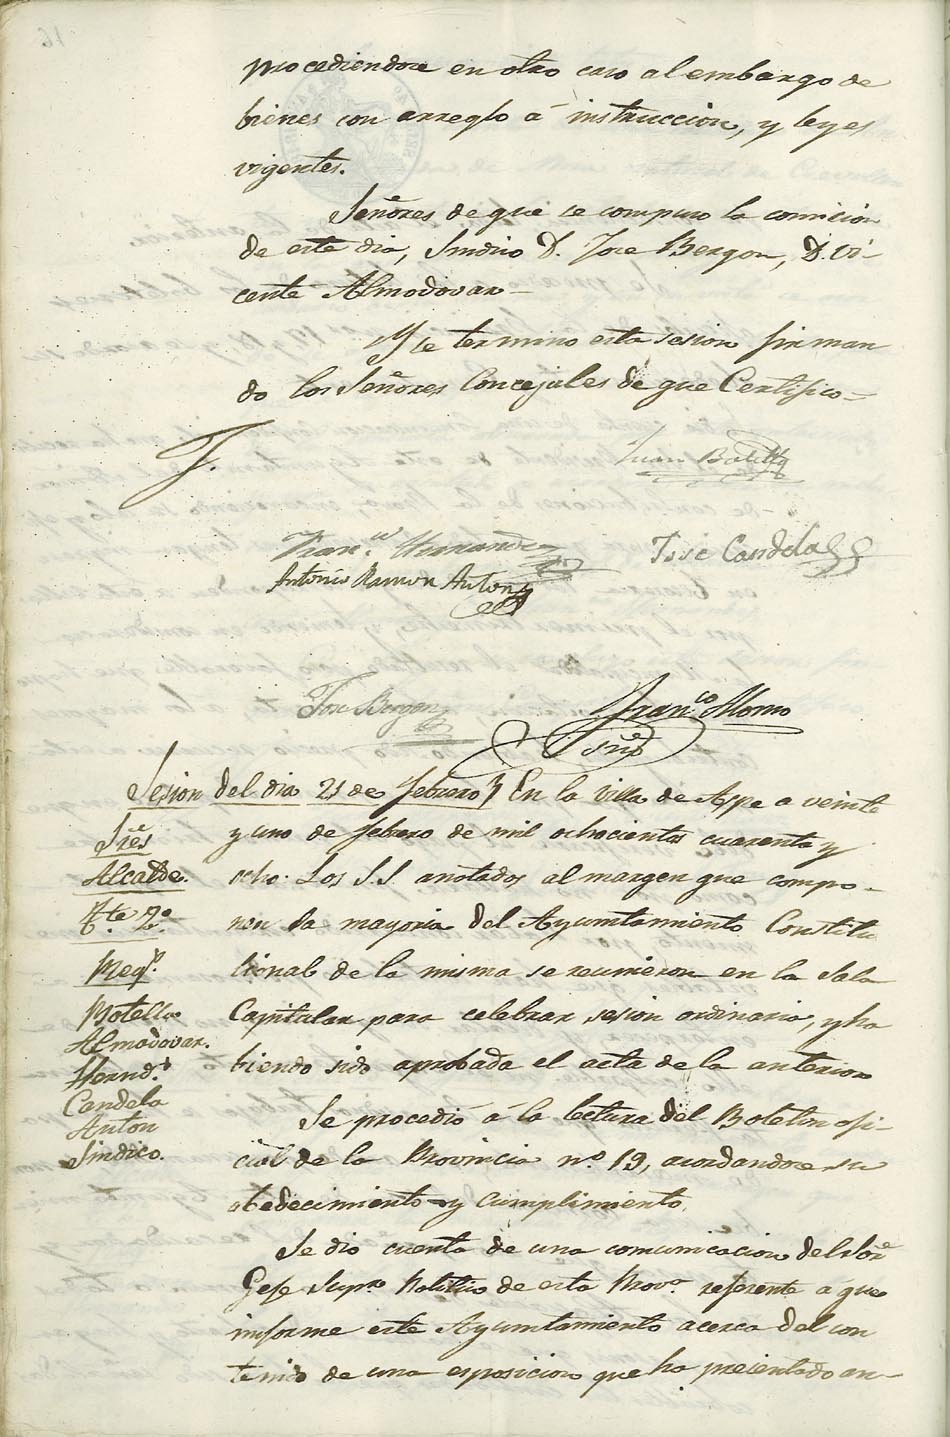 procediendose en otro caso al embargo de
bienes con arreglo á instruccion, y leyes
vigentes.
Señores de que se compuso la comicion
de este dia, Sindico D. Jose Bergon, D. Vi-
cente Almodovar
Y se termino esta sesion firman
do los Señores Concejales de que Certifico
Juan Botella
Fran.co Hernandez
José Candela
Antonio Ramon Anton
Jose Bergon
Fran.co Alonso
Srio
Sesion del dia 21 de febrero
En la Villa de Aspe a veinte
Sres
y uno de febrero de mil ochocientos cuarenta y
Alcalde
ocho. Los S.S. anotados al margen que compo-
Tte 2.º
nen la mayoria del Ayuntamiento Constitu
cional de la misma se reunieron en la Sala
Botella
Capitular para celebrar sesion ordinaria, y ha
Almodovar.
biendo sido aprobada el acta de la anterior
Hernd.z
Candela
Se procedió á la lectura del Boletin ofi-
Anton
Sindico.
cial de la Provincia n.º 19, acordandose su
obedecimiento y cumplimiento.
Se dio cuenta de una comunicacion del Sor
Gefe Supr. Politico de esta Prov.a referente á que
informe este Ayuntamiento acerca del con
tenido de una esposicion que ha presentado an-